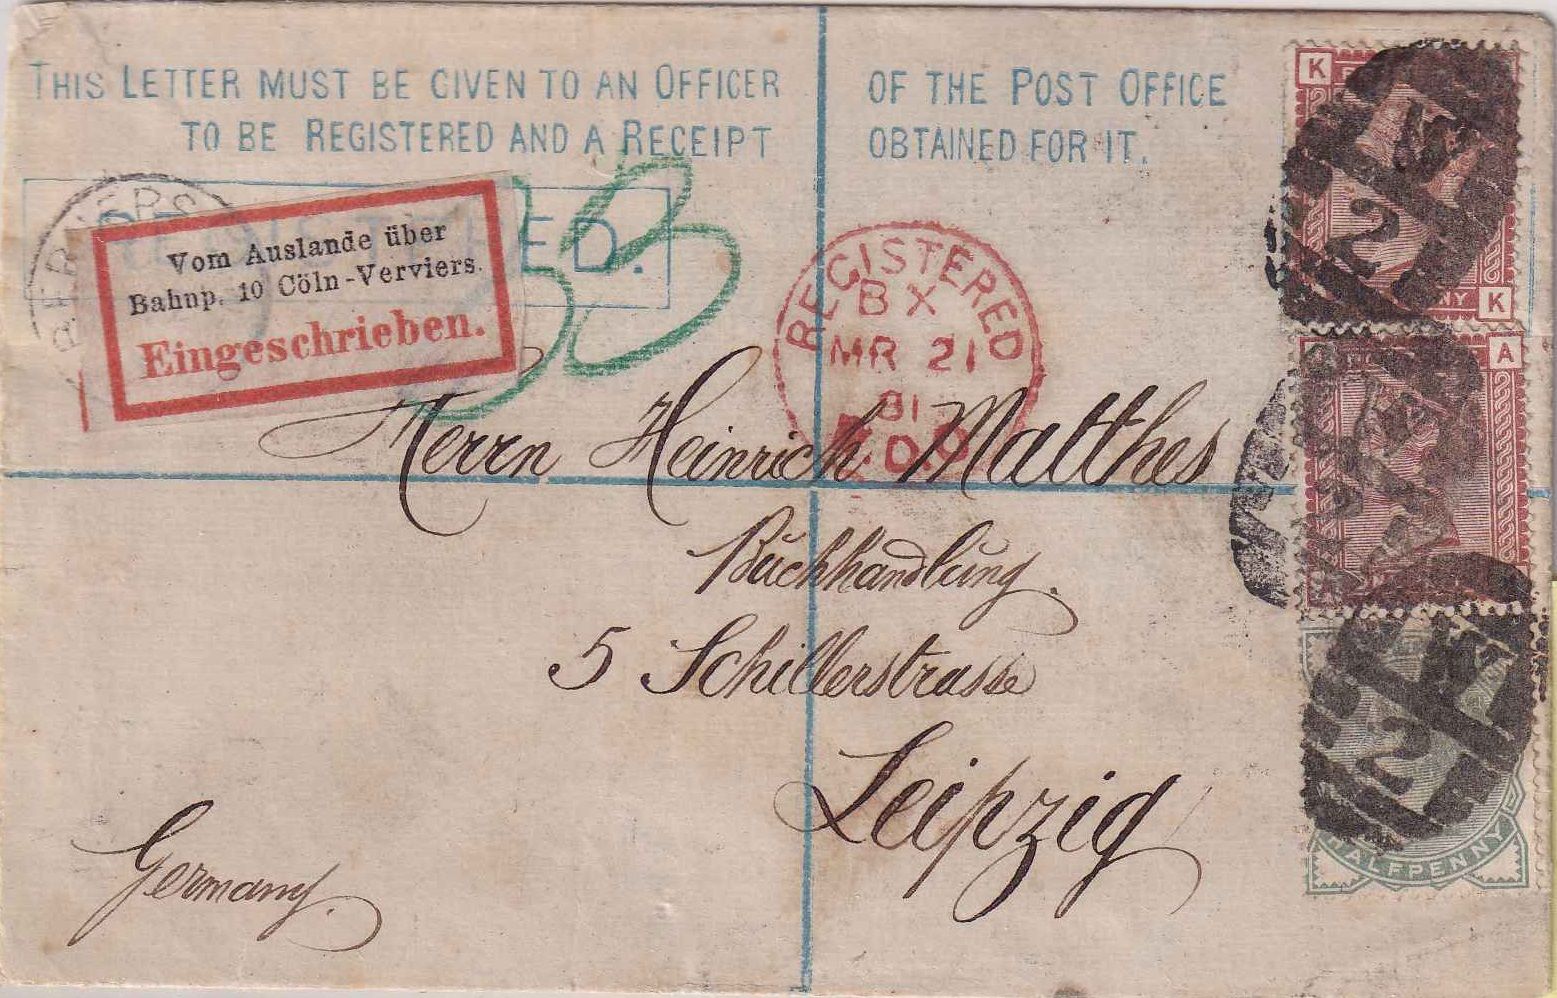 THIS LETTER MUST BE GIVEN TO AN OFFICER OF THE POST OFFICE
TO BE REGISTERED AND A RECEIPT OBTAINED FOR IT.
Vom Auslande über
Bahnp. 10 Cöln-Verviers.
Eingeschrieben.
ED.
REGISTERED
BX
MR 21
81
Herrn Heinrich Matthes
Buchhandlung.
5 Schillerstrasse
Leipzig
Germany.
K
2
NY K
A
2
HALFPENNY